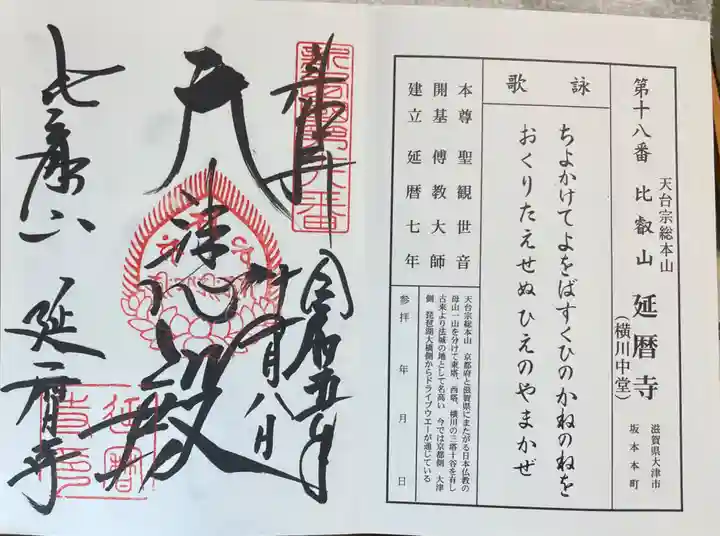 第十八番 比叡山 延暦寺
天台宗総本山
(横川中堂)
滋賀県大津市
坂本本町
詠歌
ちよかけてよをばすくひのかねのねを
おくりたえせぬひえのやまかぜ
本尊 聖観世音
開基 傳教大師
建立 延暦七年
天台宗総本山 京都府と滋賀県にまたがる日本仏教の
母山一山を分けて東塔、西塔、横川の三塔十谷を有し
古来より法城の地として名高い 今では京都側 大津
側 琵琶湖大橋側からドライブウエーが通じている
参拝 年 月 日
奉拝
令和五年
十月八日
比叡山 延暦寺